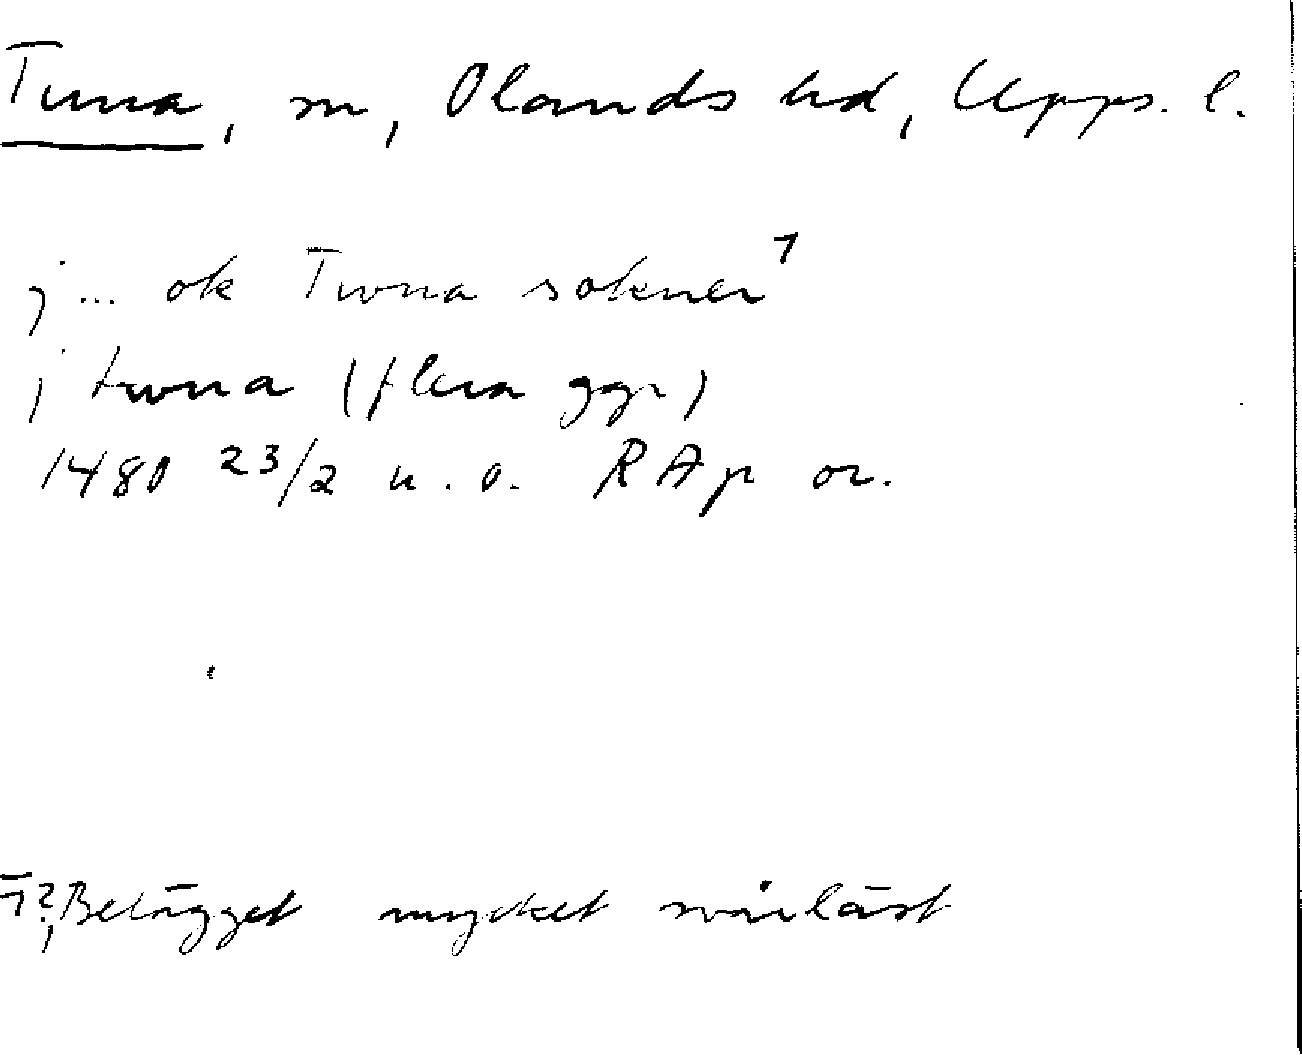 Tuna, sn, Olands hd, Upps. l.
j ... ok Twna sokner¹
j twna (flera ggr)
1480 23/2 u. o. RAp or.
1 ?, Belägget mycket svårläst